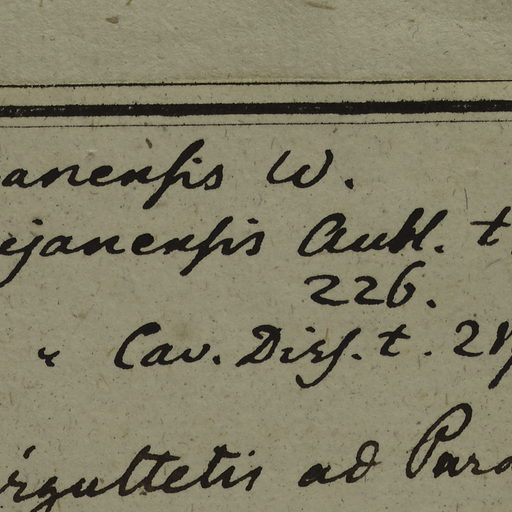 anensis W.
ijanensis Aubl. t.
226.
" Cav. Diss. t. 21
irguttetis ad Para